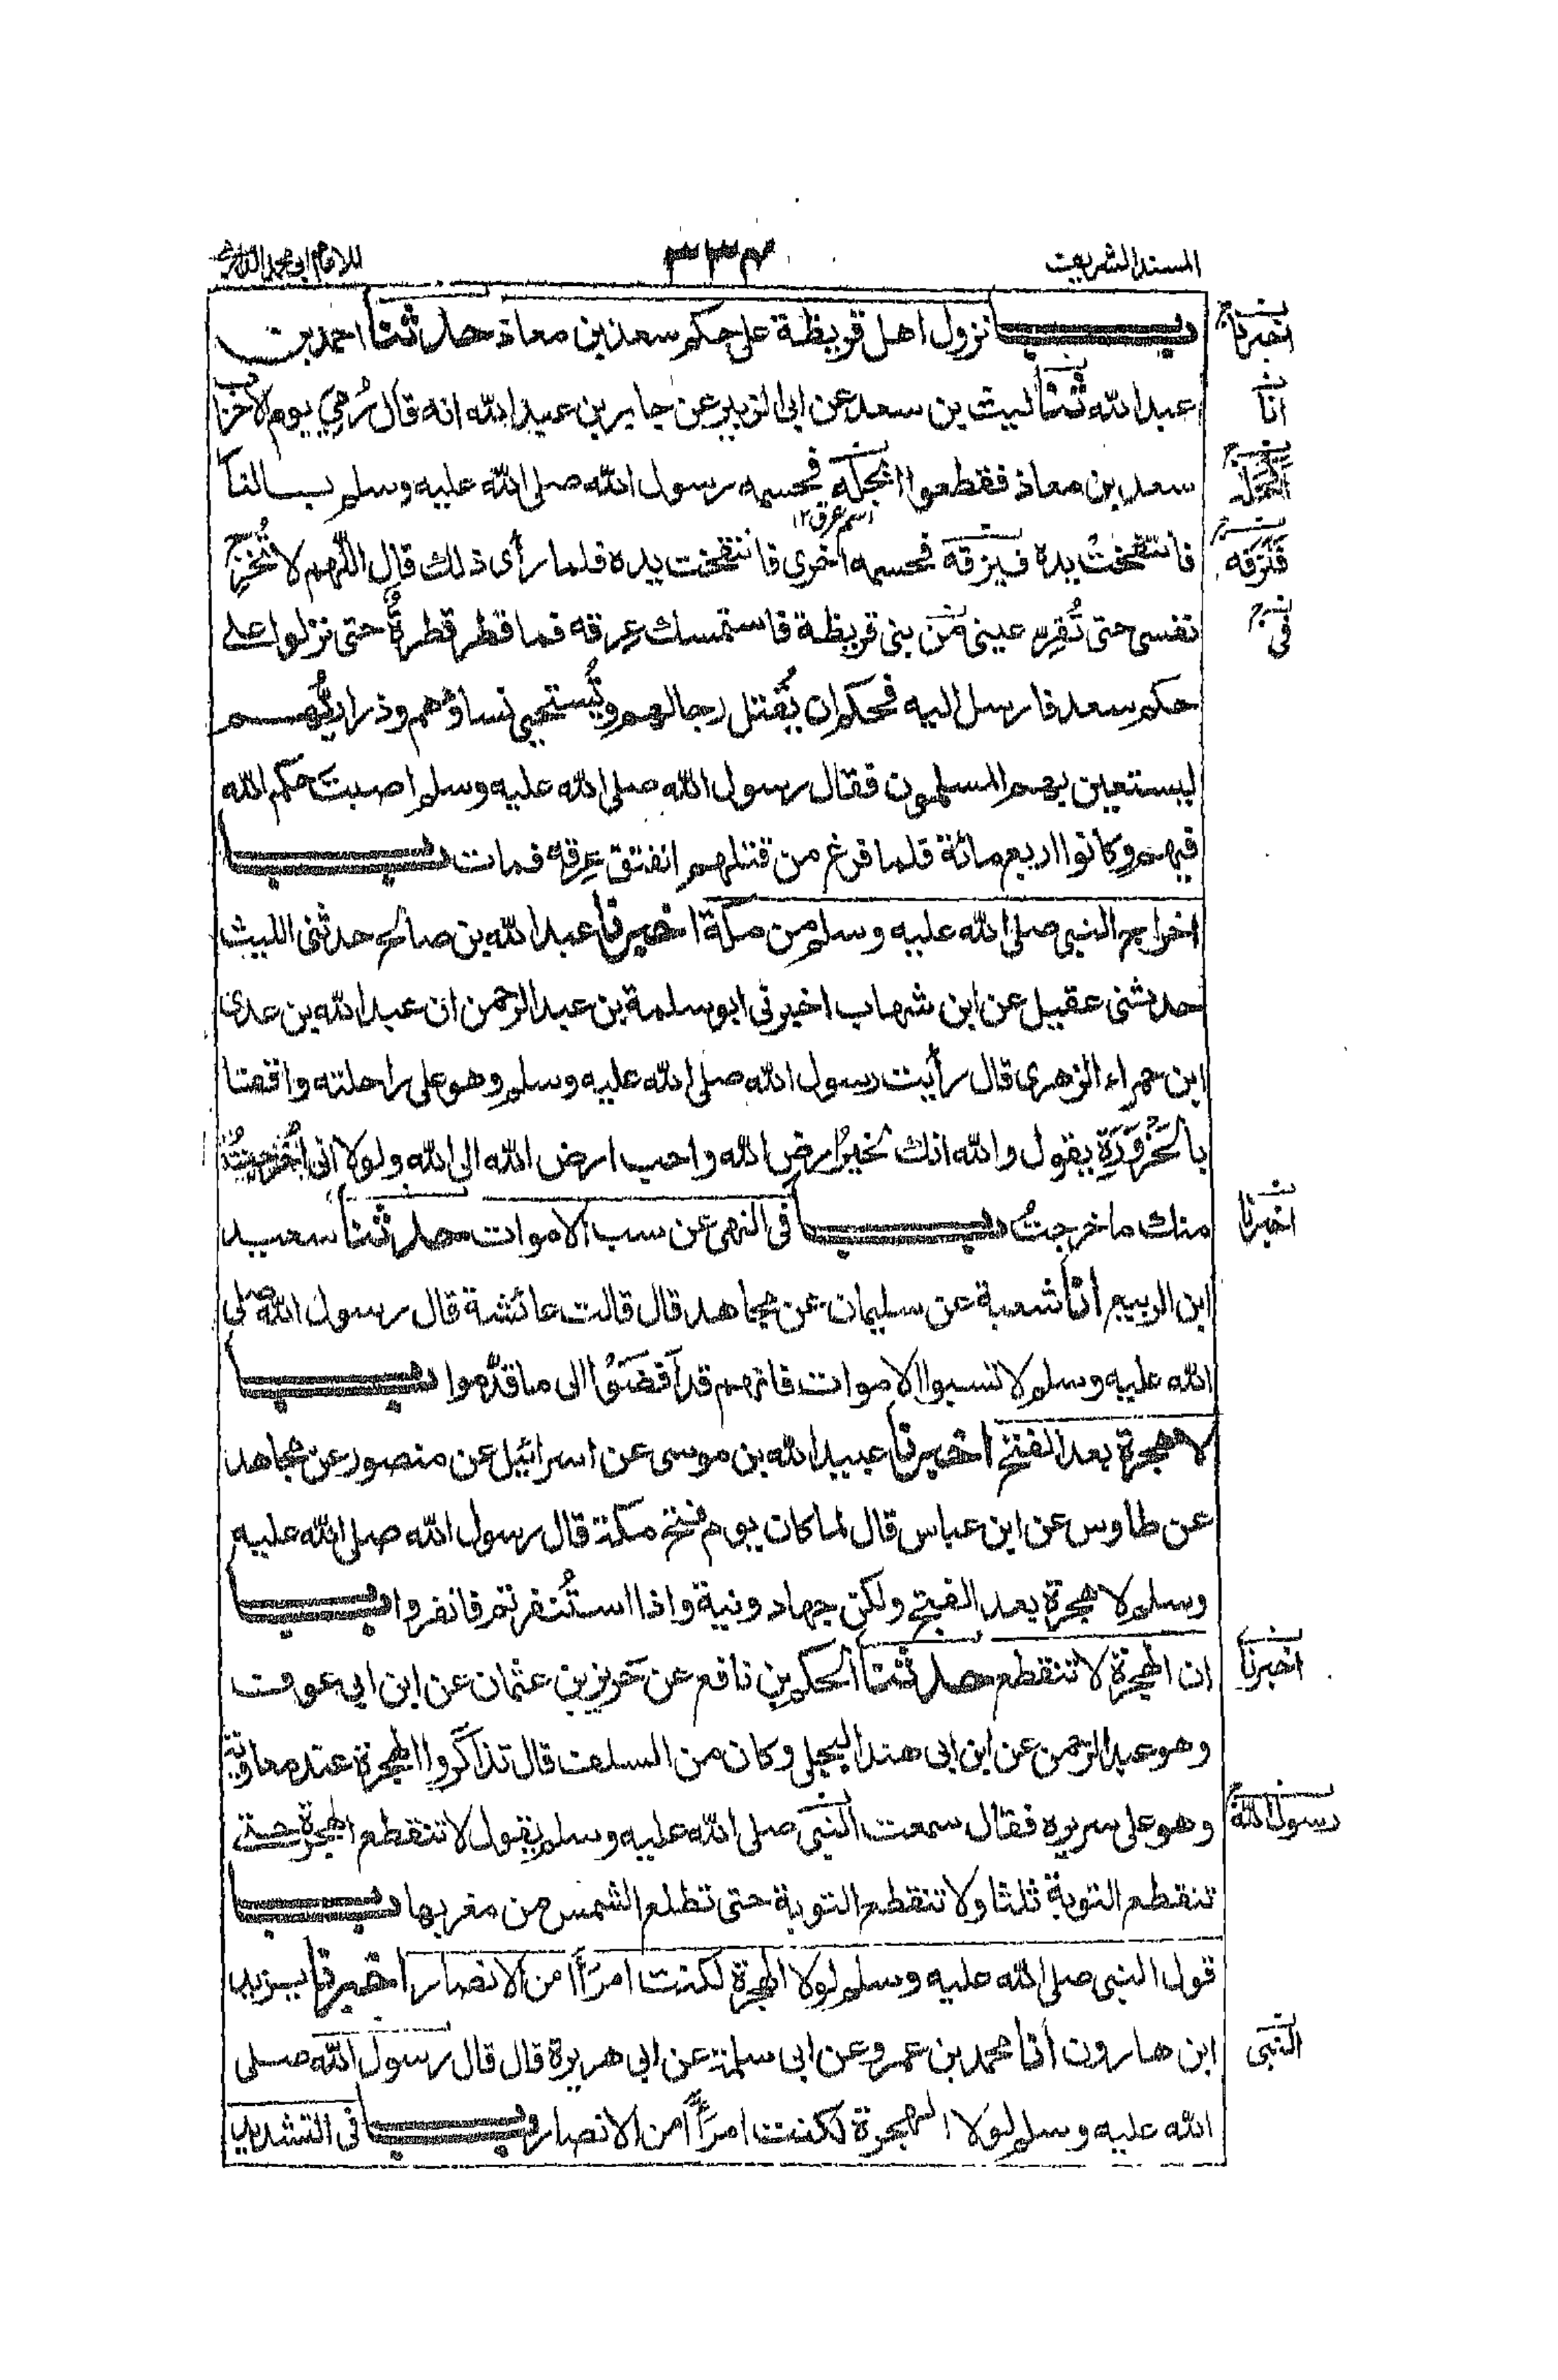 المسند الشريف
٣٣٤
للامام ابي محمد الدارمي
باب نزول اهل قريظة على حكم سعد بن معاذ حدثنا احمد بن
عبد الله ثنا ليث بن سعد عن ابى الزبير عن جابر بن عبد الله انه قال رُمِيَ يوم الاحزاب
سعد بن معاذ فقطعوا ابجله فحسمه رسول الله صلى الله عليه وسلم بالنار
اسم عرق ١٢
فانتفخت يده فنزفه فحسمه اخرى فانتفخت يده فلما رأى ذلك قال اللهم لا تُخرِج
نفسى حتى تُقِرّ عينى من بنى قريظة فاستمسك عِرقه فما قطر قطرةً حتى نزلوا على
حكم سعد فارسل اليه فحكم ان يُقتل رجالهم وتُستحيى نساؤهم وذراريُّهم
ليستعين بهم المسلمون فقال رسول الله صلى الله عليه وسلم اصبتَ حكم الله
فيهم وكانوا اربع مائة فلما فرغ من قتلهم انفتق عِرقه فمات باب
اخراج النبى صلى الله عليه وسلم من مكة اخبرنا عبد الله بن صالح حدثنى الليث
حدثنى عقيل عن ابن شهاب اخبرنى ابو سلمة بن عبد الرحمن ان عبد الله بن عدى
ابن حمراء الزهرى قال رأيت رسول الله صلى الله عليه وسلم وهو على راحلته واقفا
بالحَزْوَرَةِ يقول والله انك لخيرُ ارض الله واحب ارض الله الى الله ولولا انى اُخْرِجْتُ
منك ما خرجتُ باب فى النهى عن سب الاموات حدثنا سعيد
ابن الربيع انا شعبة عن سليمان عن مجاهد قال قالت عائشة قال رسول الله صلى
الله عليه وسلم لا تسبوا الاموات فانهم قد اَفضَوْا الى ما قدَّموا باب
لا هجرة بعد الفتح اخبرنا عبيد الله بن موسى عن اسرائيل عن منصور عن مجاهد
عن طاوس عن ابن عباس قال لما كان يوم فتح مكة قال رسول الله صلى الله عليه
وسلم لا هجرة بعد الفتح ولكن جهاد ونية واذا استُنفرتم فانفروا باب
ان الهجرة لا تنقطع حدثنا الحكم بن نافع عن حَريز بن عثمان عن ابن ابى عوف
وهو عبد الرحمن عن ابن ابى هند البجلى وكان من السلف قال تذاكروا الهجرة عند معاوية
وهو على سريره فقال سمعت النبى صلى الله عليه وسلم يقول لا تنقطع الهجرة حتى
تنقطع التوبة ثلثا ولا تنقطع التوبة حتى تطلع الشمس من مغربها باب
قول النبى صلى الله عليه وسلم لولا الهجرة لكنت امرَأً من الانصار اخبرنا يزيد
ابن هارون انا محمد بن عمرو عن ابى سلمة عن ابى هريرة قال قال رسول الله صلى
الله عليه وسلم لولا الهجرة لكنت امرَأً من الانصار باب فى التشديد
اخبرنا
انا
فنزفه
فى
اخبرنا
اخبرنا
رسول الله
النبى